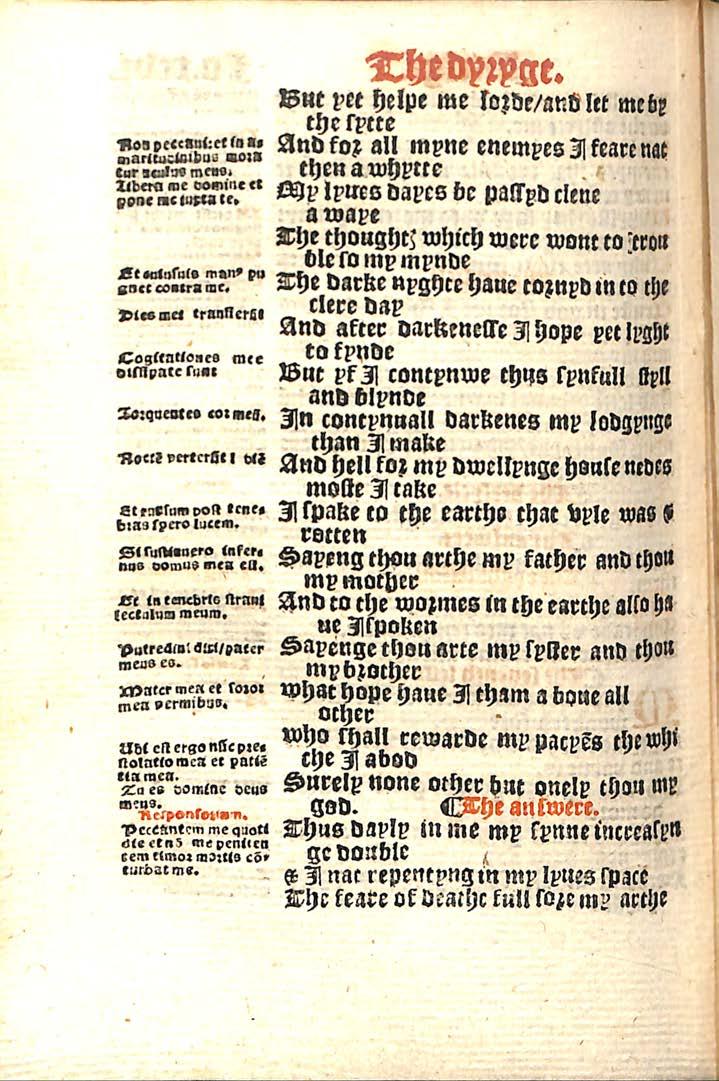 The dyryge.
But yet helpe me lorde/and let me by
the sytte
And for all myne enemyes I feare nat
then a whytte
My lyues dayes be passyd clene
a waye
The thoughtꝭ which were wont to trou
ble so my mynde
The darke nyghte haue tornyd in to the
clere day
And after darkenesse I hope yet lyght
to fynde
But yf I contynwe thus synfull styll
and blynde
In contynuall darkenes my lodgynge
than I make
And hell for my dwellynge house nedes
moste I take
I spake to the earthe that vyle was &
rotten
Sayeng thou arthe my father and thou
my mother
And to the wormes in the earthe also ha
ue I spoken
Sayenge thou arte my syster and thou
my brother
what hope haue I tham a boue all
other
who shall rewarde my pacyēs the whi
che I abod
Surely none other but onely thou my
god. ¶The answere.
Thus dayly in me my synne increasyn
ge double
& I nat repentyng in my lyues space
The feare of deathe full sore my arthe
Non peccaui: et in as
maritudinibus mora
tur oculus meus.
Libera me domine et
pone me iuxta te.
Et cuiusuis manꝰ pu
gnet contra me.
Dies mei transierūt
Cogitationes mee
dissipate sunt
Torquentes cor meū.
Noctē verterūt ī diē
Et rursum post tene-
bras spero lucem.
Si sustinuero infer-
nus domus mea est.
Et in tenebris straui
lectulum meum.
Putredini dixi/pater
meus es.
Mater mea et soror
mea vermibus.
Ubi est ergo nūc pre-
stolatio mea et patiē
tia mea.
Tu es domine deus
meus.
Responsoyum.
Peccantem me quoti
die et nō me peniten
tem timor mortis cō-
turbat me.